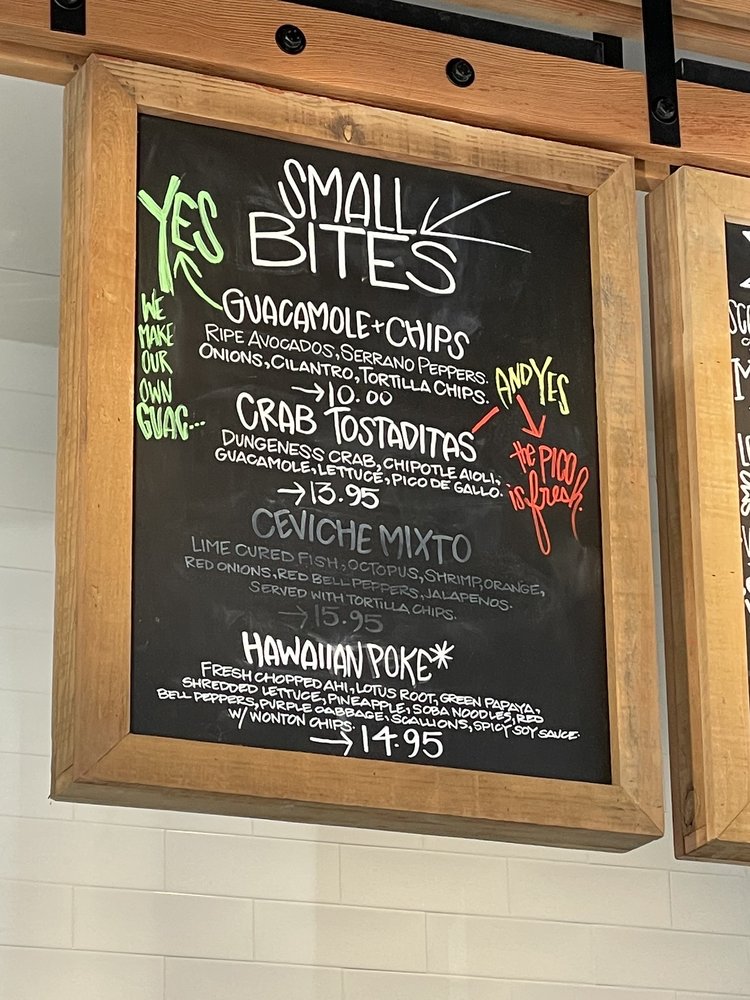 SMALL
BITES
YES
WE
MAKE
OUR
OWN
GUAC...
GUACAMOLE + CHIPS
RIPE AVOCADOS, SERRANO PEPPERS.
ONIONS, CILANTRO, TORTILLA CHIPS.
→10.00
AND YES
the PICO
is fresh.
CRAB TOSTADITAS
DUNGENESS CRAB, CHIPOTLE AIOLI,
GUACAMOLE, LETTUCE, PICO DE GALLO.
→13.95
CEVICHE MIXTO
LIME CURED FISH, OCTOPUS, SHRIMP, ORANGE,
RED ONIONS, RED BELL PEPPERS, JALAPENOS.
SERVED WITH TORTILLA CHIPS.
→15.95
HAWAIIAN POKE*
FRESH CHOPPED AHI, LOTUS ROOT, GREEN PAPAYA,
SHREDDED LETTUCE, PINEAPPLE, SOBA NOODLES, RED
BELL PEPPERS, PURPLE CABBAGE, SCALLIONS, SPICY SOY SAUCE.
W/ WONTON CHIPS.
→14.95